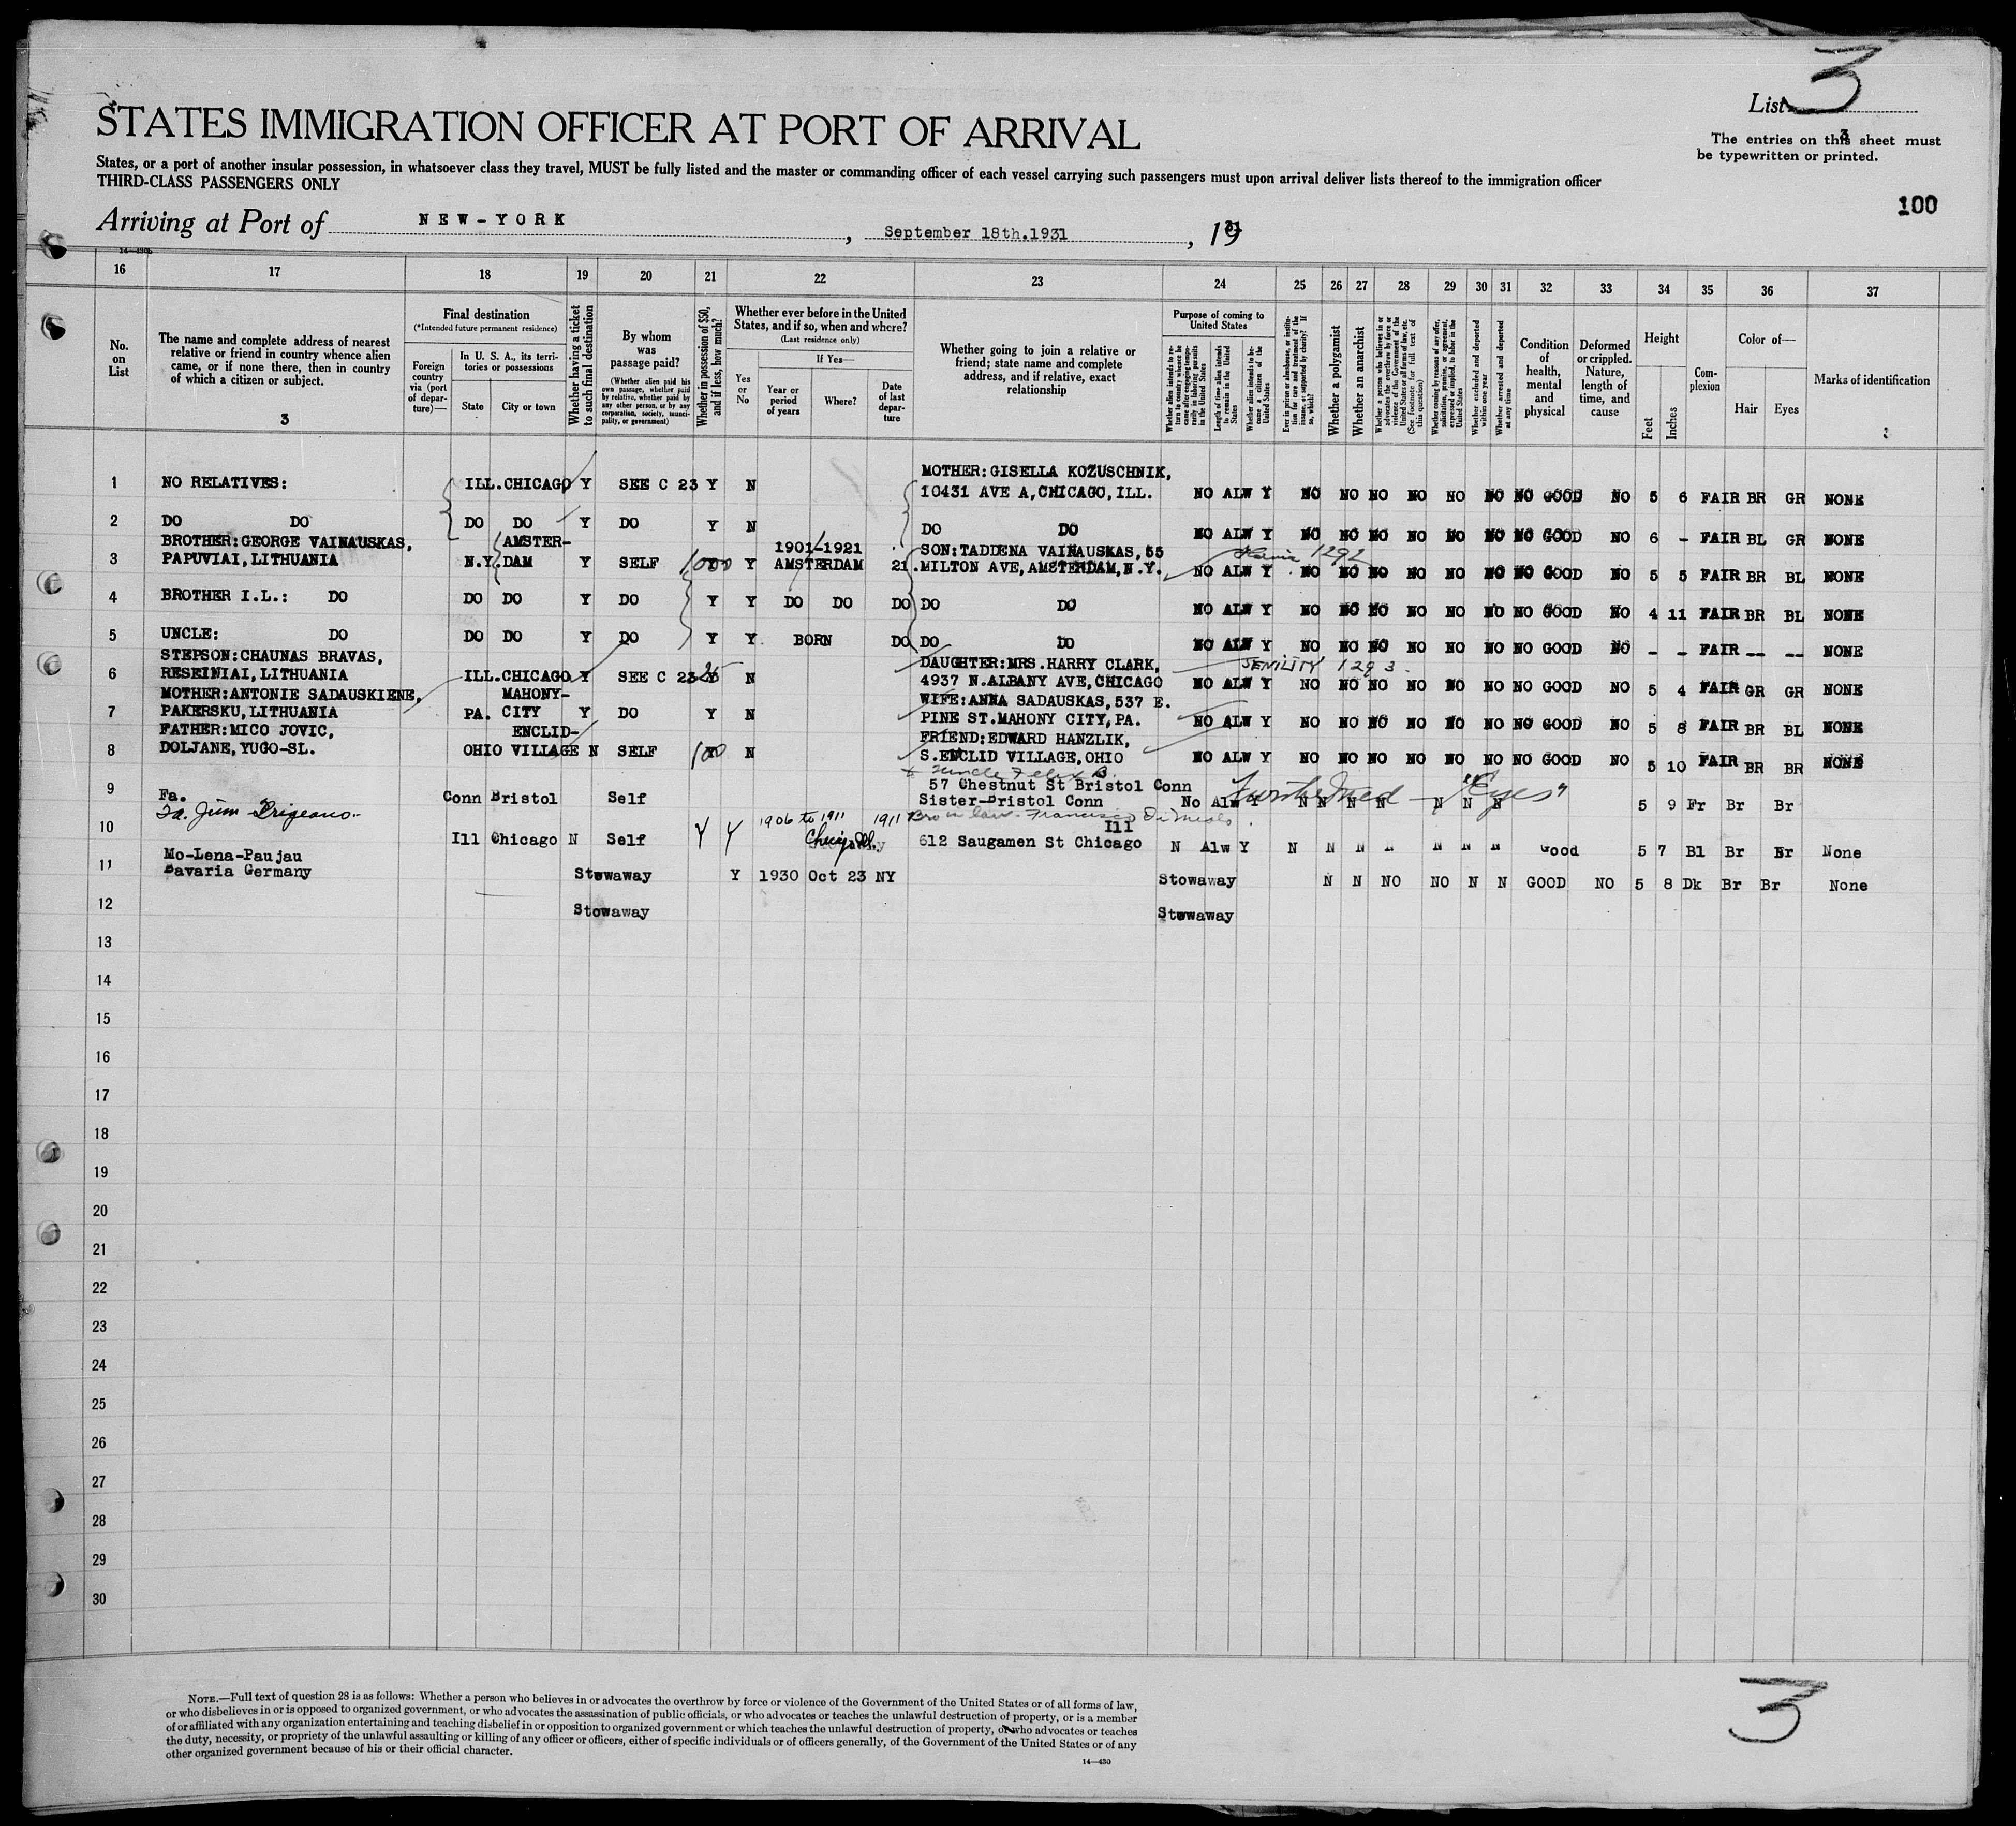 List 3
STATES IMMIGRATION OFFICER AT PORT OF ARRIVAL
The entries on this sheet must
be typewritten or printed.
3
States, or a port of another insular possession, in whatsoever class they travel, MUST be fully listed and the master or commanding officer of each vessel carrying such passengers must upon arrival deliver lists thereof to the immigration officer
THIRD-CLASS PASSENGERS ONLY
100
Arriving at Port of NEW-YORK, September 18th.1931, 19 31
16 17 18 19 20 21 22 23 24 25 26 27 28 29 30 31 32 33 34 35 36 37
No. on List
The name and complete address of nearest relative or friend in country whence alien came, or if none there, then in country of which a citizen or subject.
3
Final destination
(*Intended future permanent residence)
Foreign country via (port of departure)—
In U. S. A., its territories or possessions
State
City or town
Whether having a ticket to such final destination
By whom was passage paid?
(Whether alien paid his own passage, whether paid by relative, whether paid by any other person, or by any corporation, society, municipality, or government)
Whether in possession of $50, and if less, how much?
Whether ever before in the United States, and if so, when and where?
(Last residence only)
Yes or No
If Yes—
Year or period of years
Where?
Date of last departure
Whether going to join a relative or friend; state name and complete address, and if relative, exact relationship
Purpose of coming to United States
Whether alien intends to return to country whence he came after engaging temporarily in laboring pursuits in the United States
Length of time alien intends to remain in the United States
Whether alien intends to become a citizen of the United States
Ever in prison or almshouse, or institution for care and treatment of the insane, or supported by charity? If so, which?
Whether a polygamist
Whether an anarchist
Whether a person who believes in or advocates the overthrow by force or violence of the Government of the United States or of all forms of law, etc. (See footnote for full text of this question)
Whether coming by reasons of any offer, solicitation, promise, or agreement, expressed or implied, to labor in the United States
Whether excluded and deported within one year
Whether arrested and deported at any time
Condition of health, mental and physical
Deformed or crippled. Nature, length of time, and cause
Height
Feet
Inches
Complexion
Color of—
Hair
Eyes
Marks of identification
MOTHER:GISELLA KOZUSCHNIK,
1 NO RELATIVES: ILL. CHICAGO Y SEE C 23 Y N 10431 AVE A,CHICAGO,ILL. NO ALW Y NO NO NO NO NO NO NO GOOD NO 5 6 FAIR BR GR NONE
2 DO DO DO DO Y DO Y N DO DO NO ALW Y NO NO NO NO NO NO NO GOOD NO 6 - FAIR BL GR NONE
BROTHER:GEORGE VAINAUSKAS, AMSTER- 1901-1921 SON:TADDENA VAINAUSKAS,55 1292
3 PAPUVIAI,LITHUANIA N.Y. DAM Y SELF 1000 Y AMSTERDAM 21. MILTON AVE,AMSTERDAM,N.Y. NO ALW Y NO NO NO NO NO NO NO GOOD NO 5 5 FAIR BR BL NONE
4 BROTHER I.L.: DO DO DO Y DO Y Y DO DO DO DO DO NO ALW Y NO NO NO NO NO NO NO GOOD NO 4 11 FAIR BR BL NONE
5 UNCLE: DO DO DO Y DO Y Y BORN DO DO DO NO ALW Y NO NO NO NO NO NO NO GOOD NO - - FAIR -- -- NONE
STEPSON:CHAUNAS BRAVAS, DAUGHTER:MRS.HARRY CLARK, SENILITY 1293
6 RESEINIAI,LITHUANIA ILL. CHICAGO Y SEE C 23 25 N 4937 N.ALBANY AVE,CHICAGO NO ALW Y NO NO NO NO NO NO NO GOOD NO 5 4 FAIR GR GR NONE
MOTHER:ANTONIE SADAUSKIENE, MAHONY- WIFE:ANNA SADAUSKAS,537 E.
7 PAKERSKU,LITHUANIA PA. CITY Y DO Y N PINE ST.MAHONY CITY,PA. NO ALW Y NO NO NO NO NO NO NO GOOD NO 5 8 FAIR BR BL NONE
FATHER:MICO JOVIC, ENCLID- FRIEND:EDWARD HANZLIK,
8 DOLJANE,YUGO-SL. OHIO VILLAGE N SELF 100 N S.ENCLID VILLAGE,OHIO NO ALW Y NO NO NO NO NO NO NO GOOD NO 5 10 FAIR BR BR NONE
Uncle Felix B.
57 Chestnut St Bristol Conn
9 Fa. Conn Bristol Self Sister-Bristol Conn No Alw Y N N N N N N N "Eyes" 5 9 Fr Br Br
Fa. Jim 1906 to 1911 1911 Bro in law. Francisco
Ill
10 Ill Chicago N Self Y Y 612 Saugamen St Chicago N Alw Y N N N N N N Good 5 7 Bl Br Br None
Mo-Lena-Paujau
11 Bavaria Germany Stowaway Y 1930 Oct 23 NY Stowaway N N NO NO N N GOOD NO 5 8 Dk Br Br None
12 Stowaway Stowaway
13
14
15
16
17
18
19
20
21
22
23
24
25
26
27
28
29
30
NOTE.—Full text of question 28 is as follows: Whether a person who believes in or advocates the overthrow by force or violence of the Government of the United States or of all forms of law,
or who disbelieves in or is opposed to organized government, or who advocates the assassination of public officials, or who advocates or teaches the unlawful destruction of property, or is a member
of or affiliated with any organization entertaining and teaching disbelief in or opposition to organized government or which teaches the unlawful destruction of property, or who advocates or teaches
the duty, necessity, or propriety of the unlawful assaulting or killing of any officer or officers, either of specific individuals or of officers generally, of the Government of the United States or of any
other organized government because of his or their official character.
14—430
3